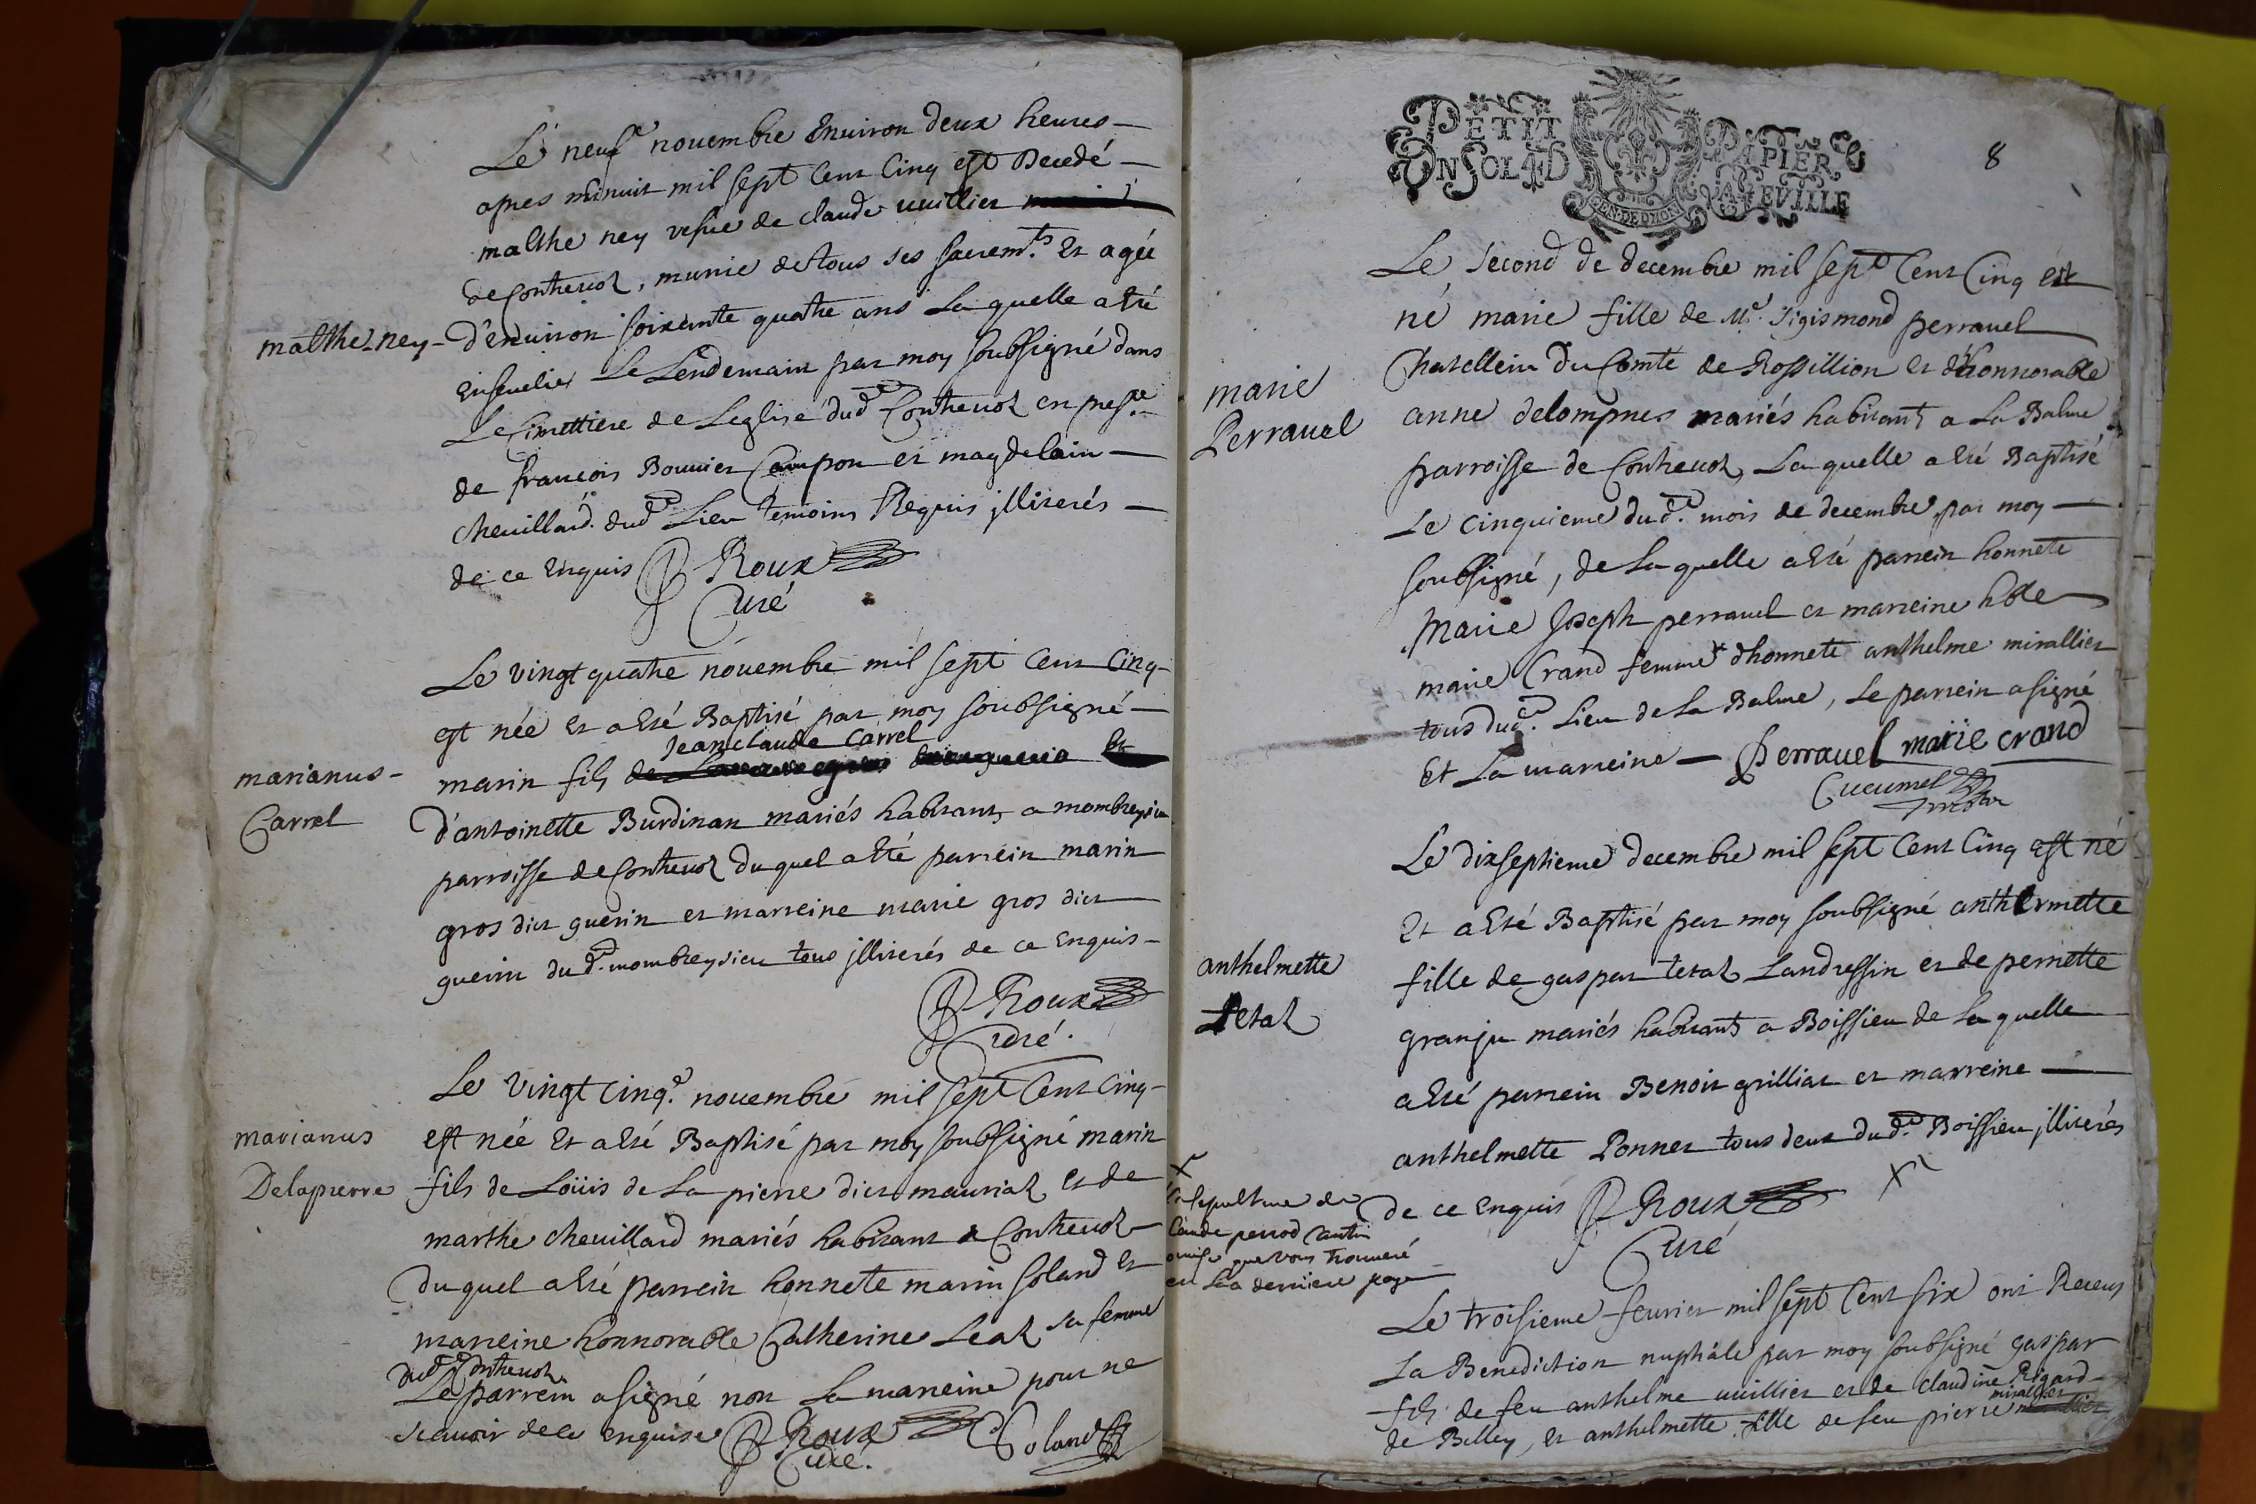 Le neuf^e novembre environ deux heures
apres minuit mil sept cent cinq est Decedé
malthe ney vefve de claude vuillier
de Contrevoz, munie de tous ses sacrem.ts et agée
malthe ney
d'environ soixante quatre ans la quelle a été
ensevelie le Lendemain par moy soubsigné dans
Le Cimettiere de Leglise dud. Contrevoz en pres.ce
de francois Bouvier Campon et magdelain
chevillard dud. Lieu temoins Requis jlliterés
de ce enquis Roux
Curé
Le vingt quatre novembre mil sept cent cinq
est née et a été Baptisé par moy soubsigné
jean claude Carrel
marianus
Carrel
marin fils de et
d'antoinette Burdinan mariés habitants a mombreysieu
parroisse de Contrevoz du quel a été parrein marin
gros dict guerin et marreine marie gros dict
guerin du d. mombreysieu tous jlliterés de ce enquis
Roux
Curé.
Le vingt cinq.e novembre mil sept cent cinq
marianus
Delapierre
est née et a été Baptisé par moy soubsigné marin
fils de Loüis de La pierre dict mauriat et de
marthe chevillard mariés habitant a Contrevoz
du quel a été parrein honnete marin soland et
marreine honnorable Catherine Leat sa femme
dud. Contrevoz
Le parrein a signé non la marreine pour ne
scavoir de ce enquise Roux Soland
Curé.
PETIT PAPIER
UN SOL 4 D LA FEUILLE
GEN. DE DIION
8
Le second de decembre mil sept cent cinq est
né marie fille de Mr. Sigismond perravel
marie
Perravel
Chatellein du Comté de Rossillion et d'honnorable
anne delompnes mariés habitants a La Balme
parroisse de Contrevoz, La quelle a été Baptisé
Le cinquieme du d. mois de decembre par moy
soubsigné, de la quelle a été parrein honnete
Marie Joseph perravel et marreine h.ble
marie Crand femme d'honnete anthelme mirallier
tous dud. Lieu de La Balme, Le parrein a signé
Et La marreine Perravel marie crand
Cucumel
Le dixseptieme decembre mil sept cent cinq est né
et a été Baptisé par moy soubsigné anthermette
anthelmette
Tetaz
fille de gaspar tetaz Landressin et de pernette
granju mariés habitants a Boissieu de La quelle
a été parrein Benoit grilliat et marreine
anthelmette Ponnet tous deux dud. Boissieu jlliterés
de ce enquis Roux
Curé
X
La sepulture de
Claude perrod Cantin
omise que vous trouveré
en La derniere page
X
Le troisieme fevrier mil sept cent six ont Receus
La Benediction nuphâle par moy soubsigné gaspar
fils de feu anthelme vuillier et de claudine Rigard
mirallier
de Belley, et anthelmette fille de feu pierre